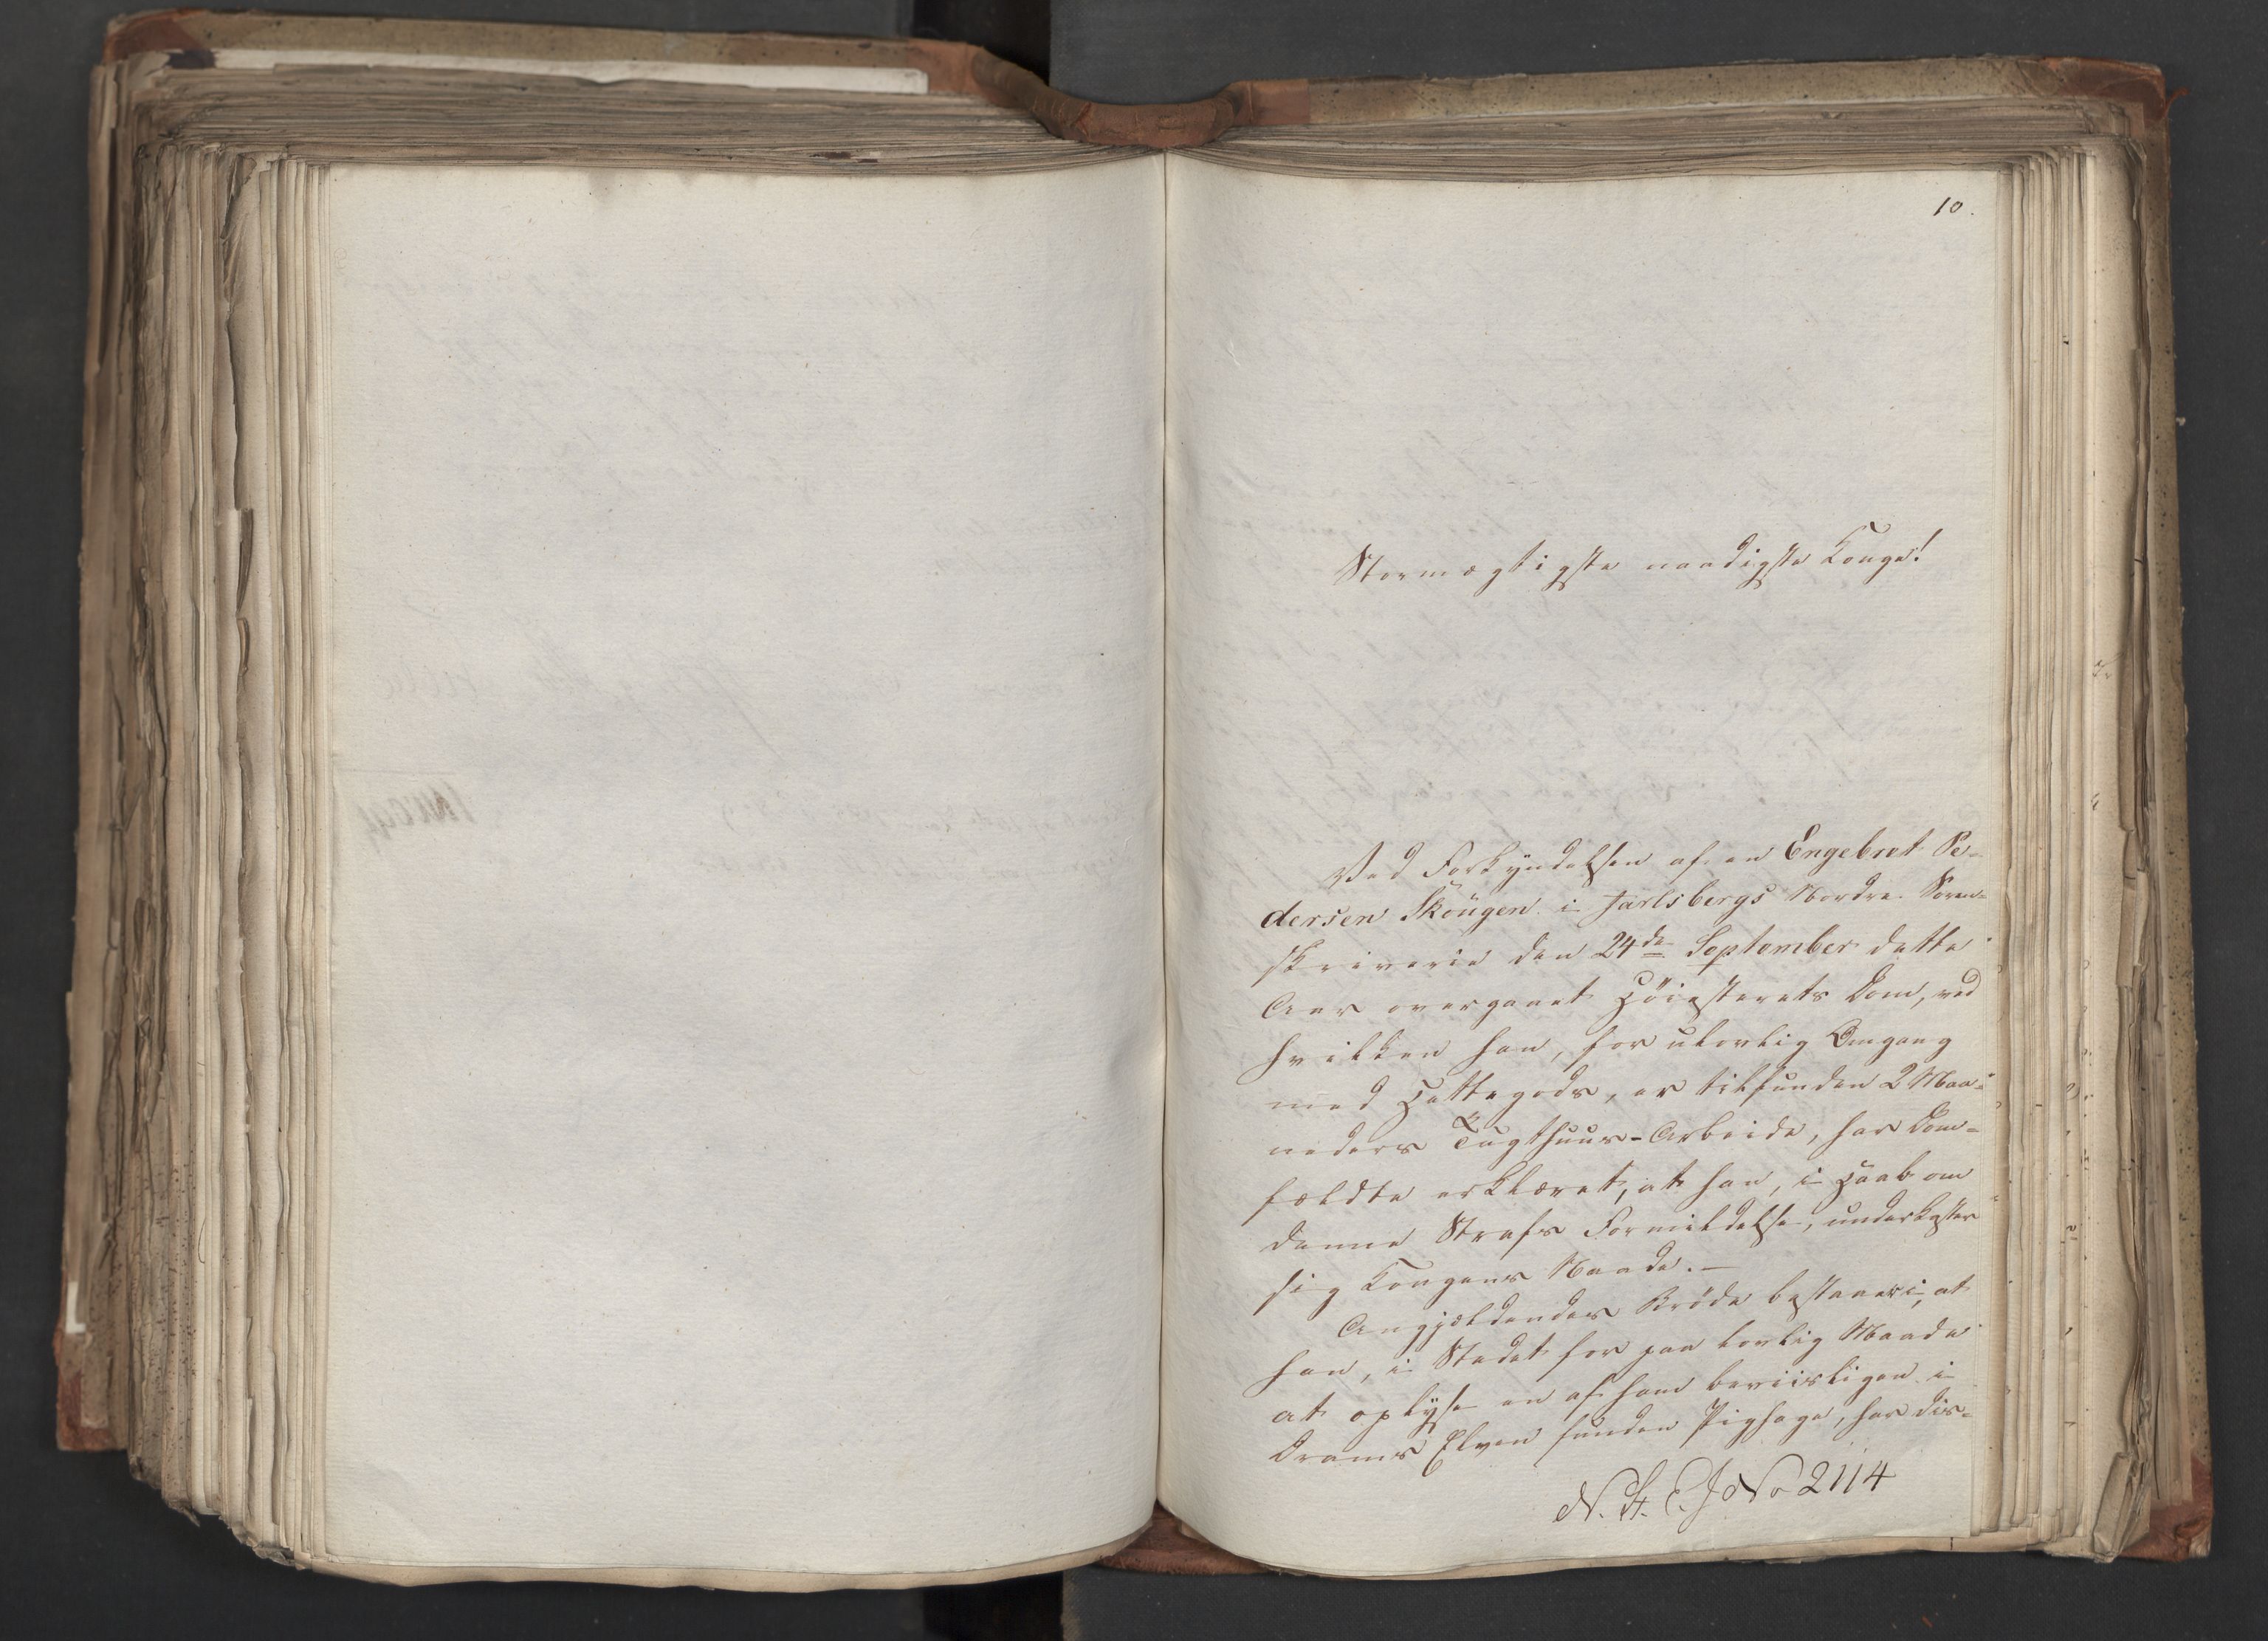 10.
Stormægtigste naadigste Konge!
Ved Forkyndelsen af en Engebret Pe-
dersen Skougen i Jarlsbergs Nordre Soren-
skriverie den 24de September dette
Aar overgaaet Høiesterets Dom, ved
hvilken han, for ulovlig Omgang
med Hittegods, er tilfunden 2 Maa-
neders Tugthuus-Arbeide, har Dom-
fældte erklæret, at han, i Haab om
denne Strafs Formildelse, underkaster
sig Kongens Naade. —
Angjældendes Brøde bestaaer i, at
han, i Stedet for paa lovlig Maade
at oplyse en af ham beviisligen i
Drams Elven funden Pighage, har dis-
N. St. E. J No 2114